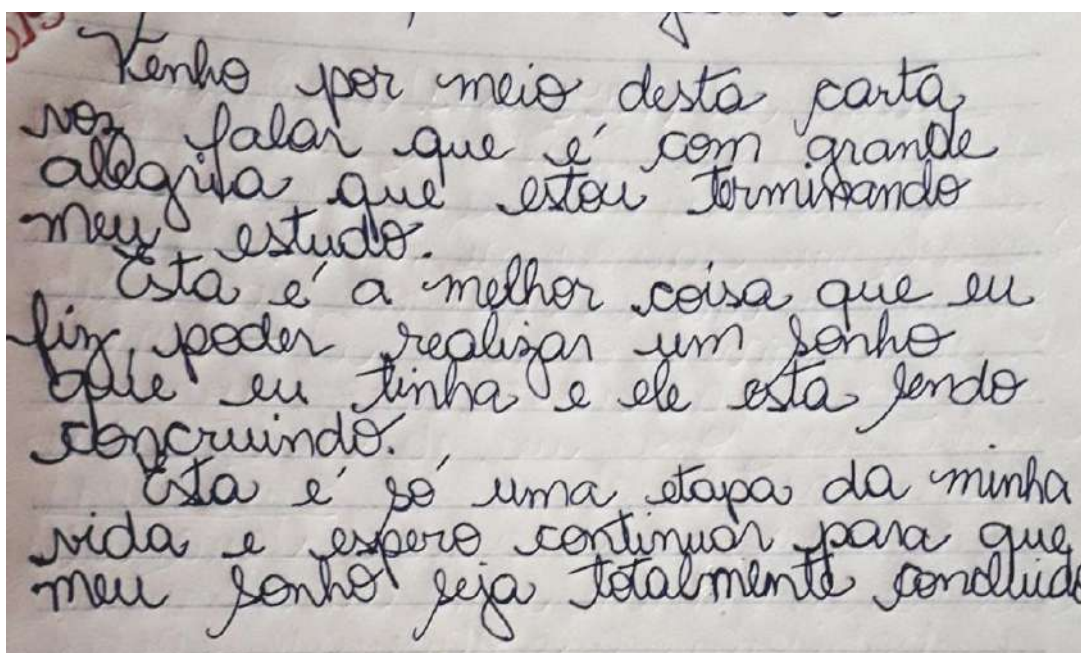 Venho por meio desta carta,
voz falar que é com grande
alegria que estou terminando
meu estudo.
Esta é a melhor coisa que eu
fiz, poder realizar um sonho
que eu tinha e ele esta sendo
concruindo.
Esta é só uma etapa da minha
vida e espero continuar para que
meu sonho seja totalmente concluido